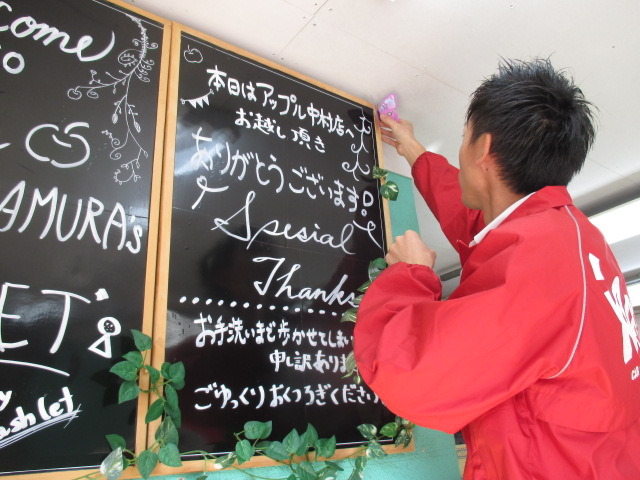 come
AMURA's
ET
本日はアップル中村店へ
お越し頂き
ありがとうございます!
Spesial
Thanks
お手洗いまで歩かせてしまい
申し訳ありま
ごゆっくりおくつろぎください